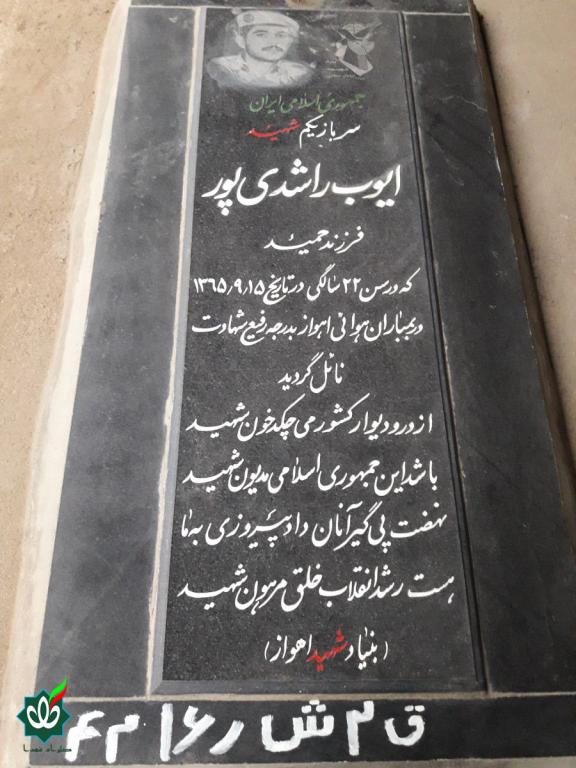 جمهوری اسلامی ایران
سرباز یکم شهید
ایوب راشدی پور
فرزند حمید
که در سن ۲۲ سالگی در تاریخ ۱۳۶۵٫۹٫۱۵
در بمباران هوائی اهواز بدرجه رفیع شهادت
نائل گردید
از در و دیوار کشور می چکد خون شهید
باشد این جمهوری اسلامی مدیون شهید
نهضت پی گیر آنان داد پیروزی به ما
هست رشد انقلاب خلق مرهون شهید
(بنیاد شهید اهواز)
ق ۲ ش ر ۱۶ م ۴
گلزار شهدا